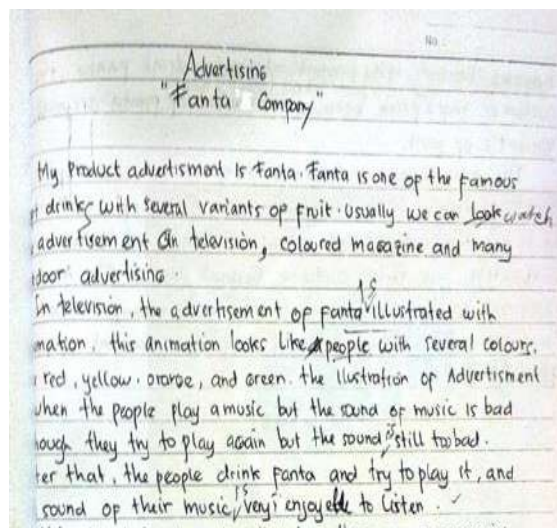 No
Advertising
"Fanta Company"
My Product advertisment is Fanta. Fanta is one of the famous
drinks with several variants of fruit. Usually we can look watch
advertisement on television, coloured magazine and many
door advertising.
In television, the advertisement of fanta is illustrated with
mation. this animation looks like people with several colours.
red, yellow, orange, and green. the Ilustration of Advertisment
when the people play a music but the sound of music is bad
ough they try to play again but the sound is still too bad.
ter that, the people drink fanta and try to play it, and
sound of their music is very enjoy to Listen.